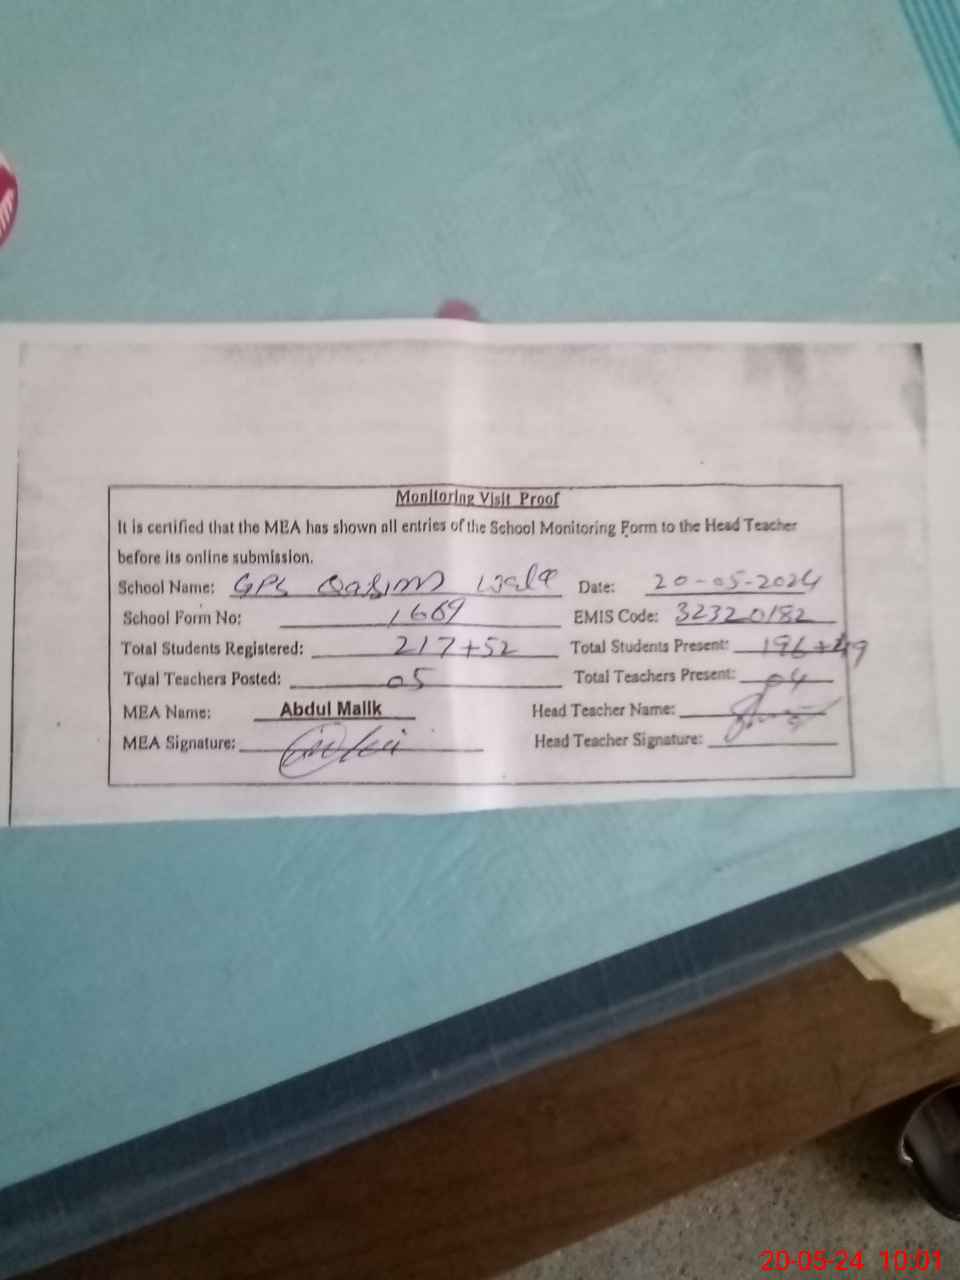 Monitoring Visit Proof
It is certified that the MEA has shown all entries of the School Monitoring Form to the Head Teacher
before its online submission.
School Name: GPS Qasim wala Date: 20-05-2024
School Form No: 1669 EMIS Code: 32320182
Total Students Registered: 217+52 Total Students Present: 196+49
Total Teachers Posted: 05 Total Teachers Present: 04
MEA Name: Abdul Malik Head Teacher Name:
MEA Signature: Head Teacher Signature:
20-05-24 10:01